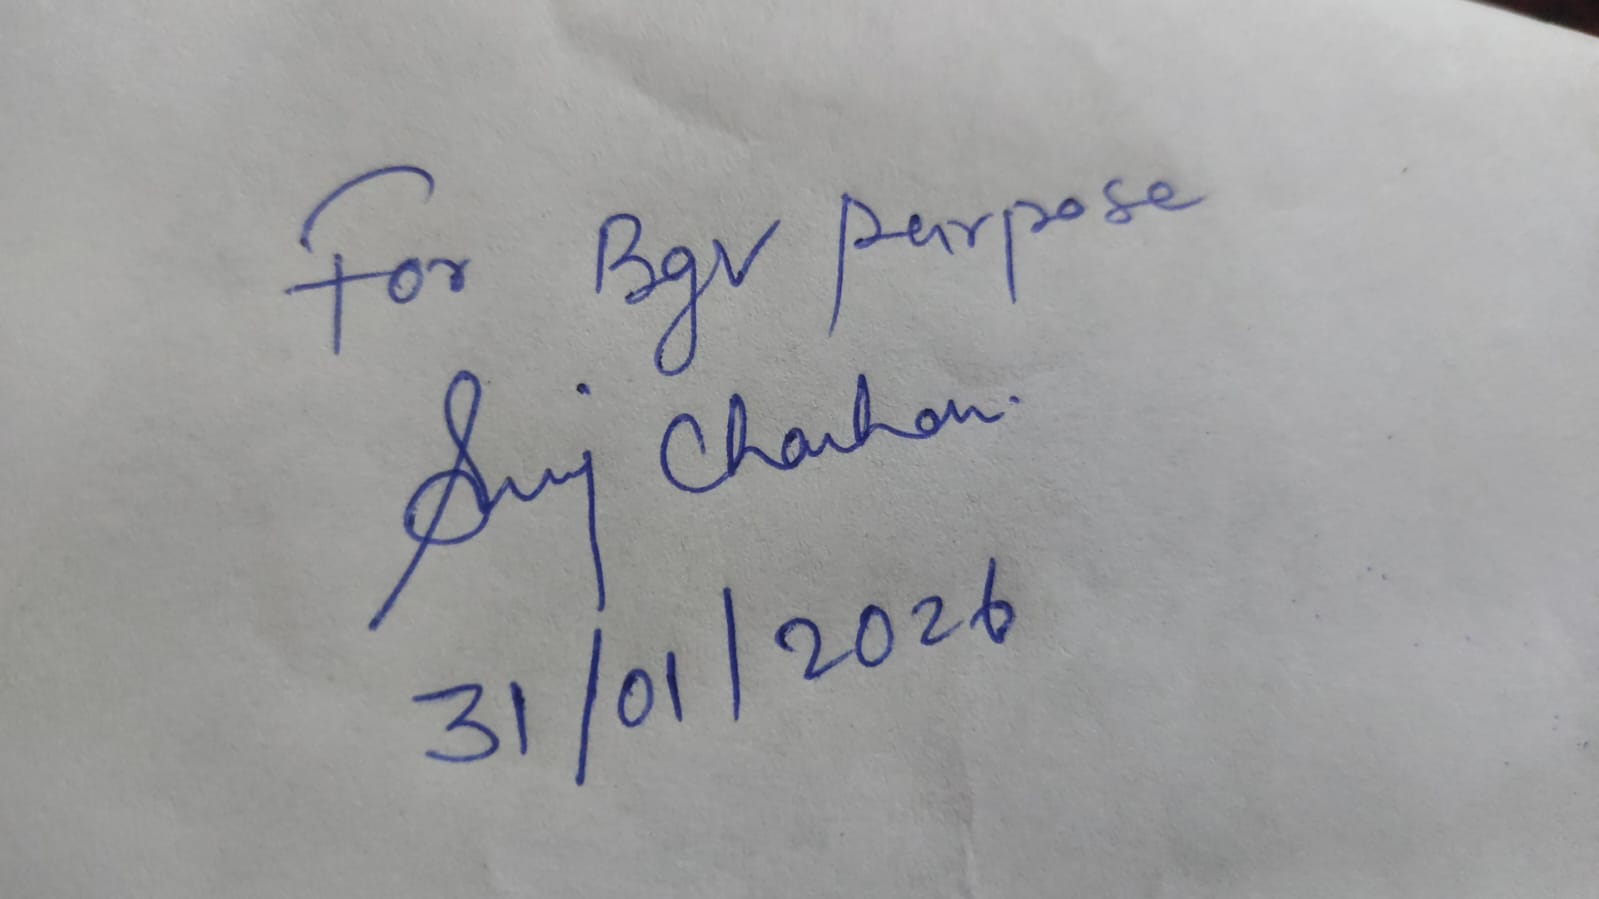 For Bgv purpose
Chauhan.
31/01/2026